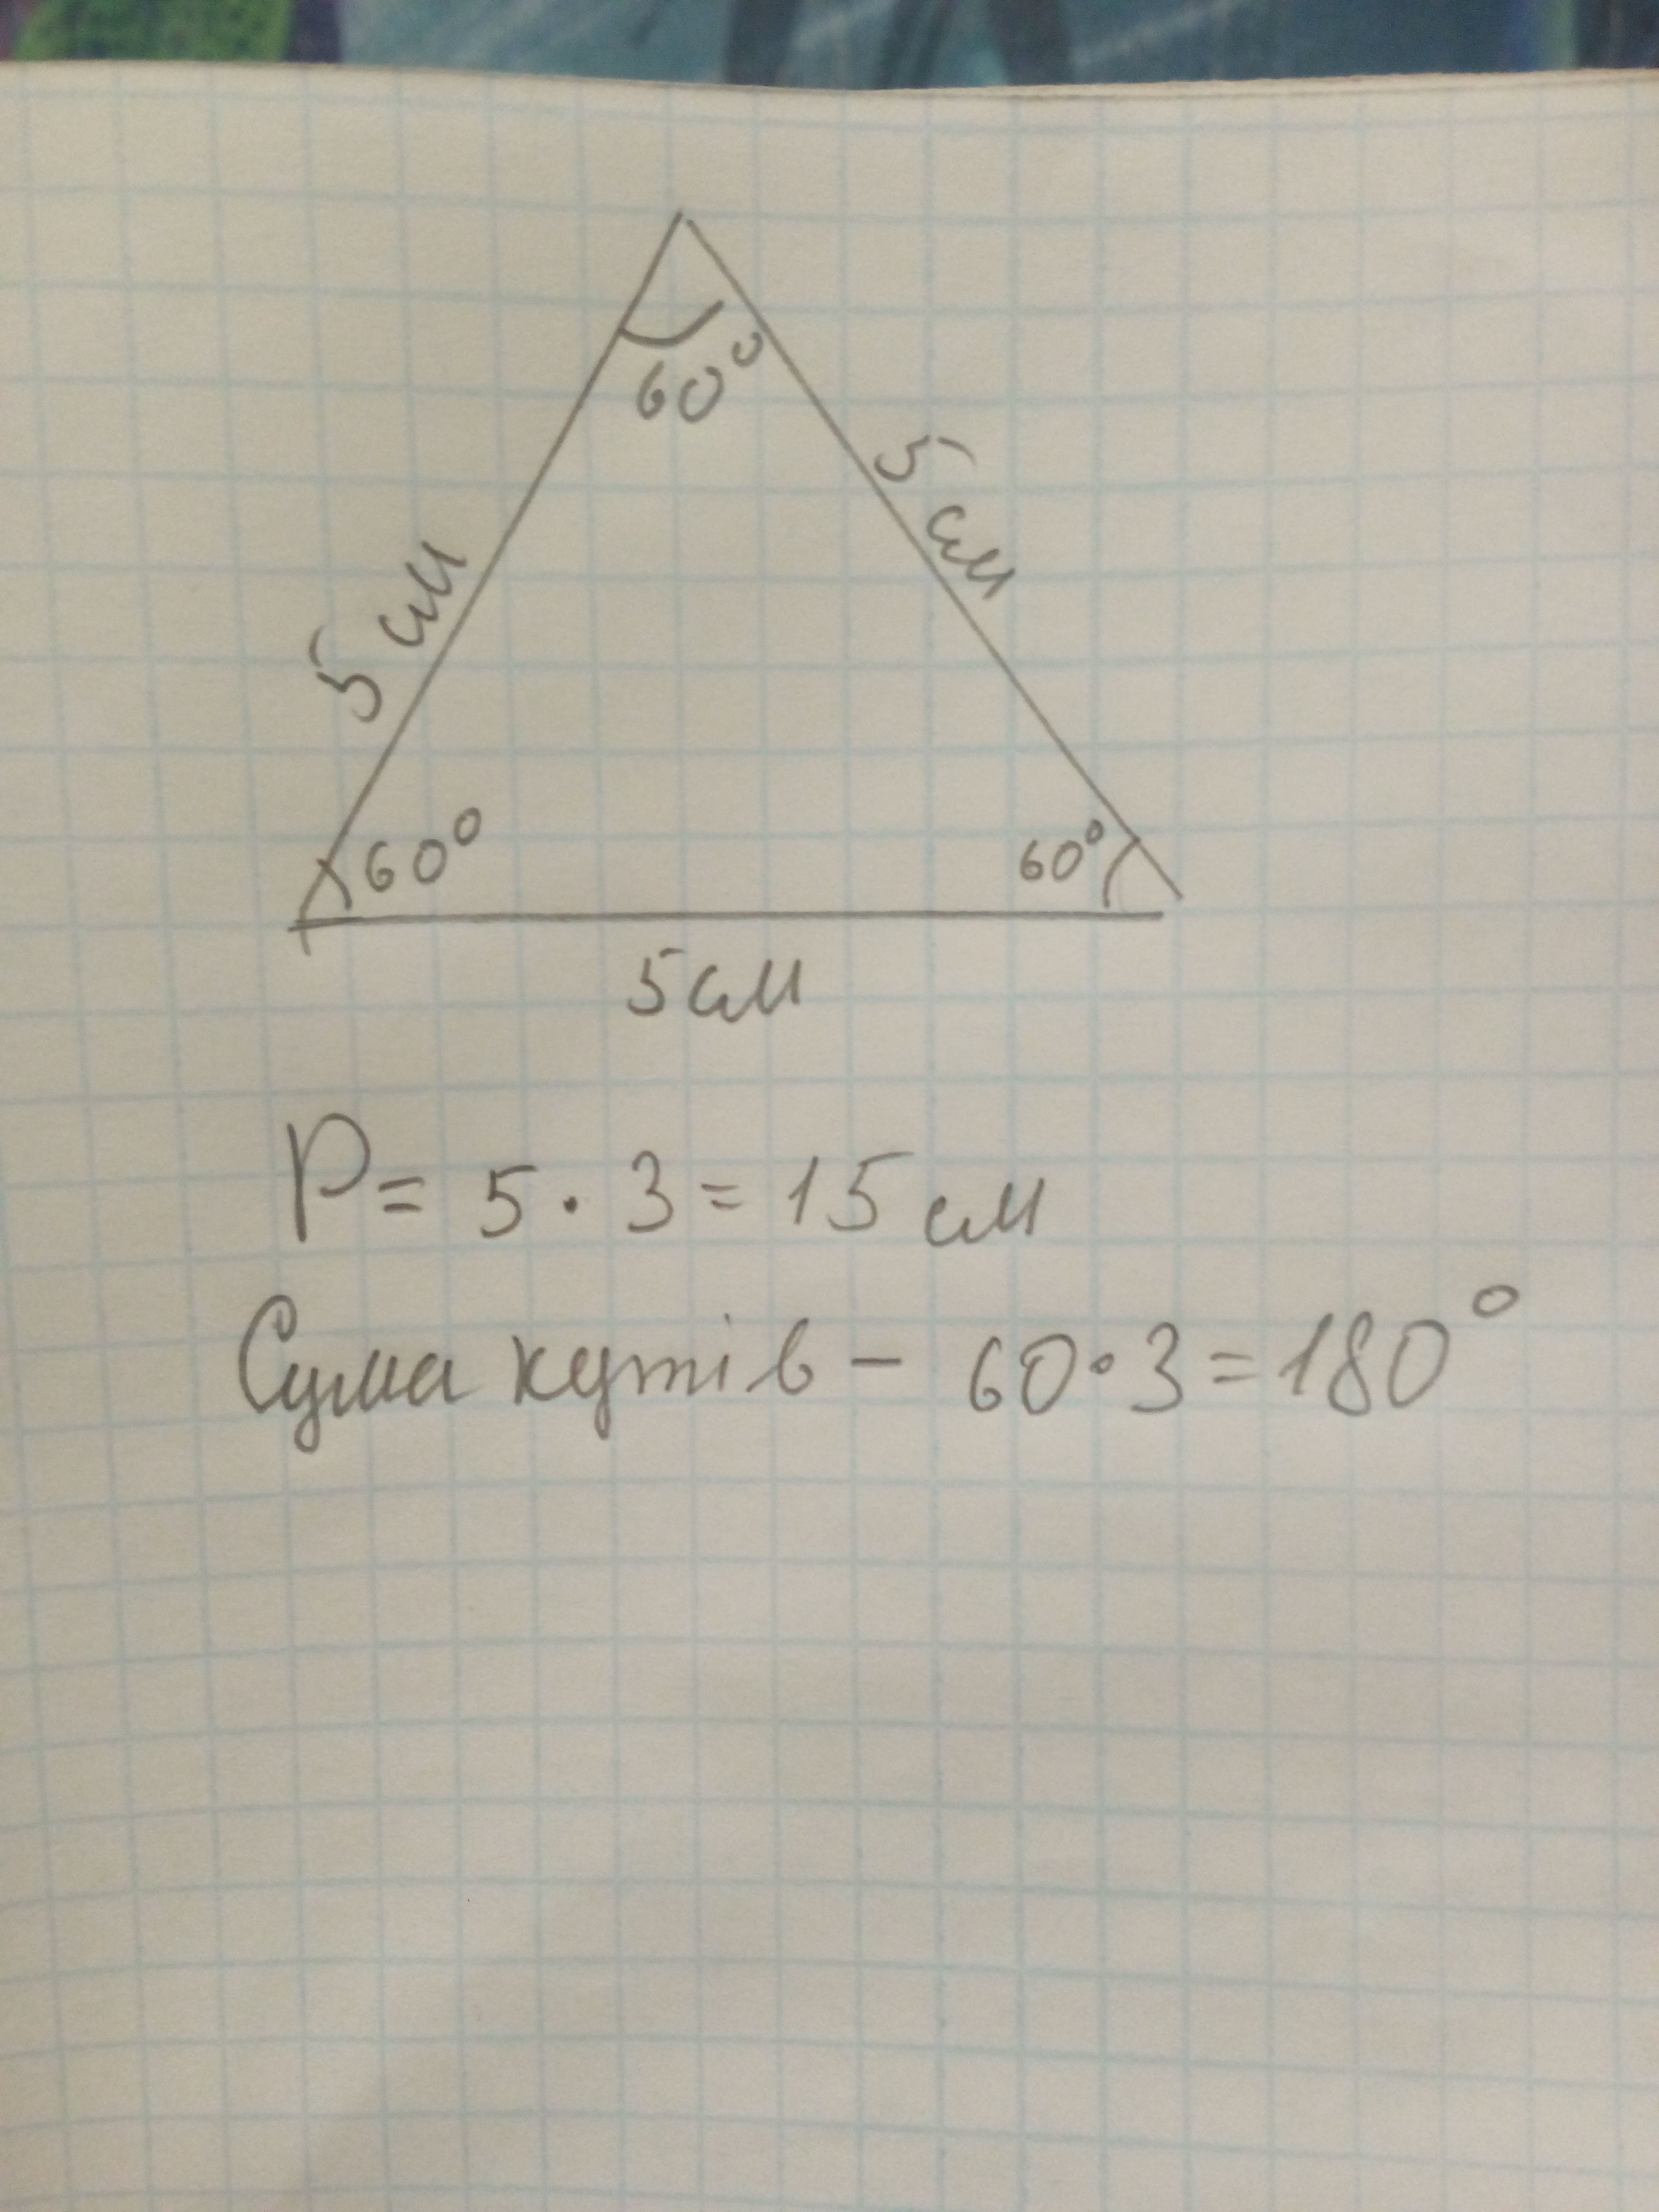 60°
5 см
5 см
60°
60°
5 см
P = 5 · 3 = 15 см
Сума кутів – 60 · 3 = 180°